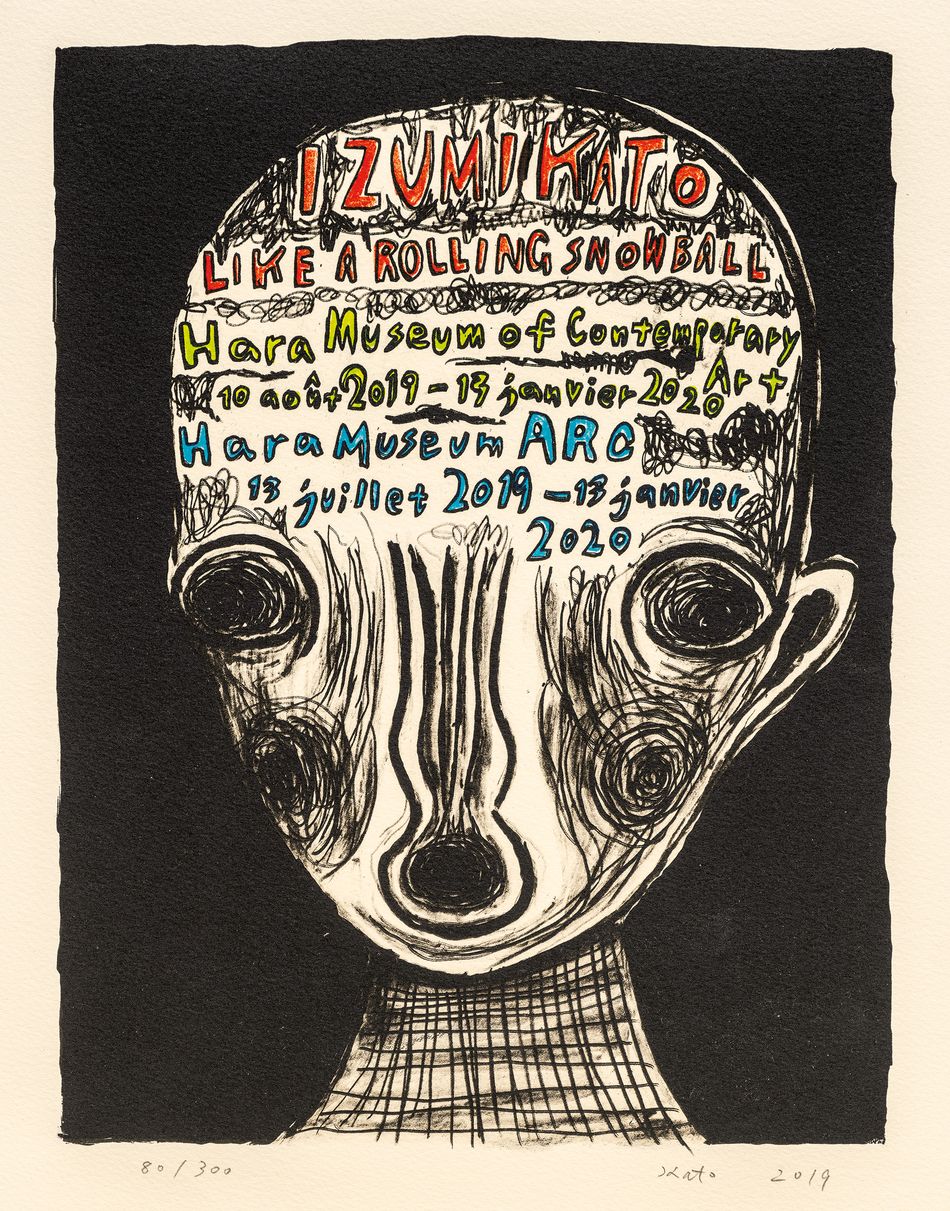 IZUMI KATO
LIKE A ROLLING SNOWBALL
Hara Museum of Contemporary
Art
10 août 2019 - 13 janvier 2020
Hara Museum ARC
13 juillet 2019 - 13 janvier
2020
80/300 Kato 2019